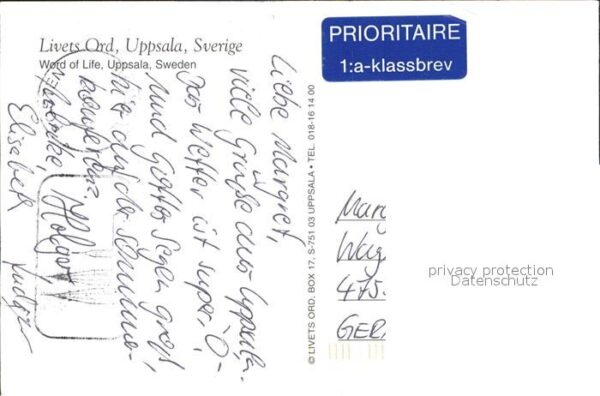 Livets Ord, Uppsala, Sverige
Word of Life, Uppsala, Sweden
PRIORITAIRE
1:a-klassbrev
Liebe Margret,
viele Grüße aus Uppsala.
Das Wetter ist super
und Gottes Segen groß
hier auf der
konferenz.
Holger,
Elisabeth
© LIVETS ORD, BOX 17, S-751 03 UPPSALA • TEL. 018-16 14 00
Marg
475
GER
privacy protection
Datenschutz